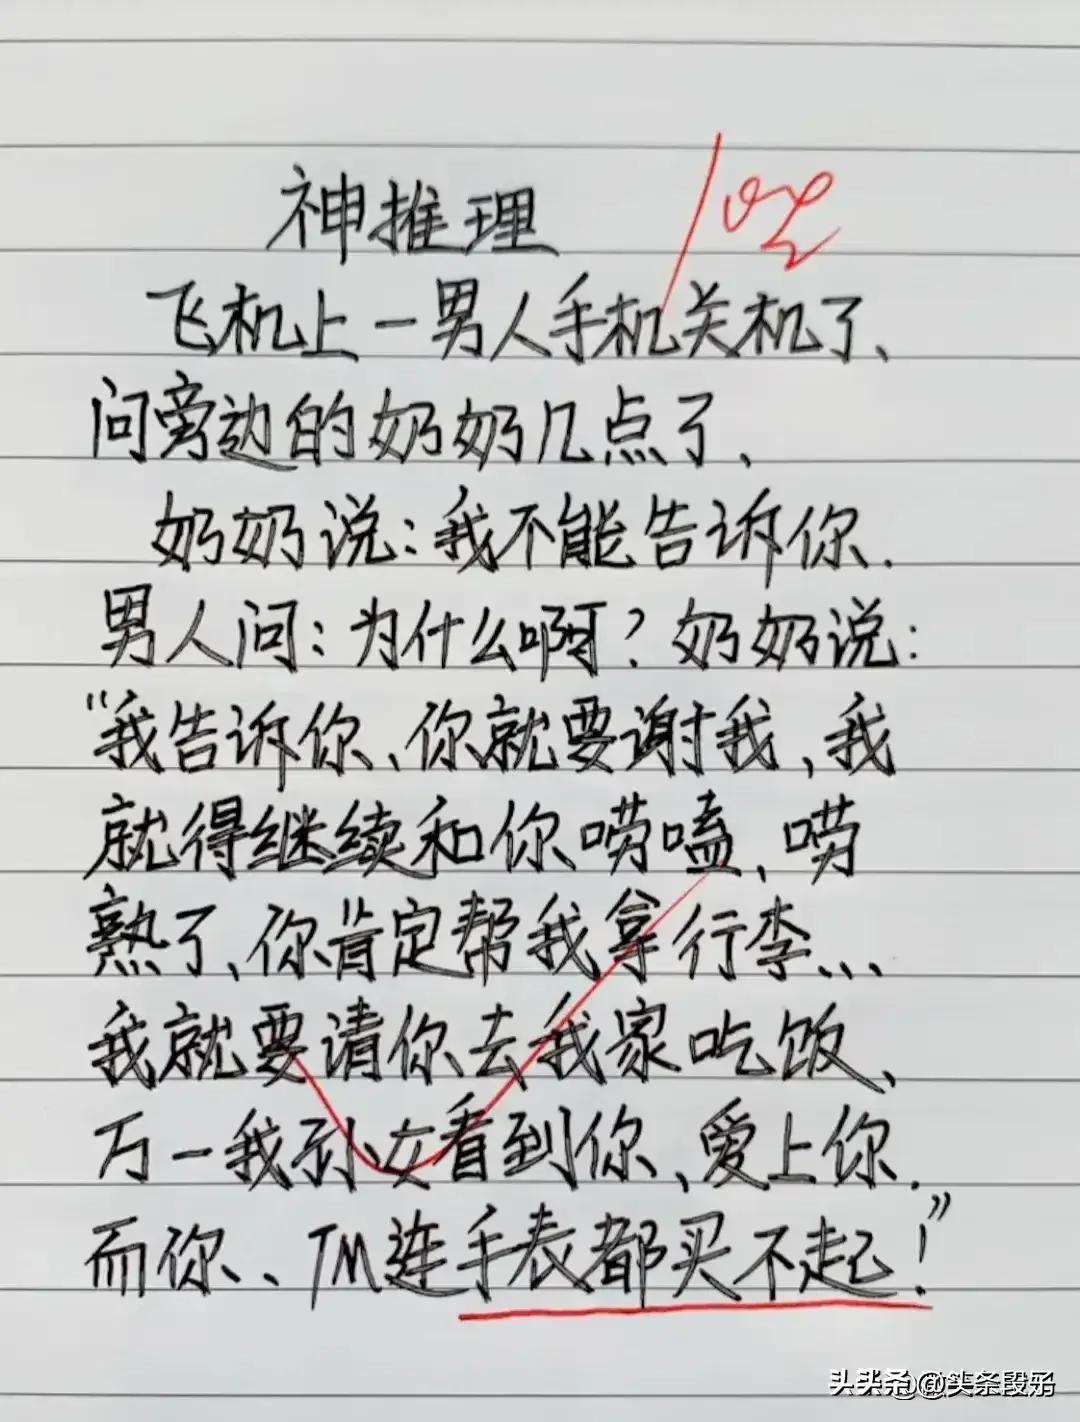 神推理
飞机上一男人手机关机了、
问旁边的奶奶几点了、
奶奶说：我不能告诉你.
男人问：为什么啊？奶奶说：
“我告诉你、你就要谢我，我
就得继续和你唠嗑、唠
熟了、你肯定帮我拿行李、、、
我就要请你去我家吃饭、
万一我孙女看到你、爱上你.
而你、TM连手表都买不起！”
@头条段子